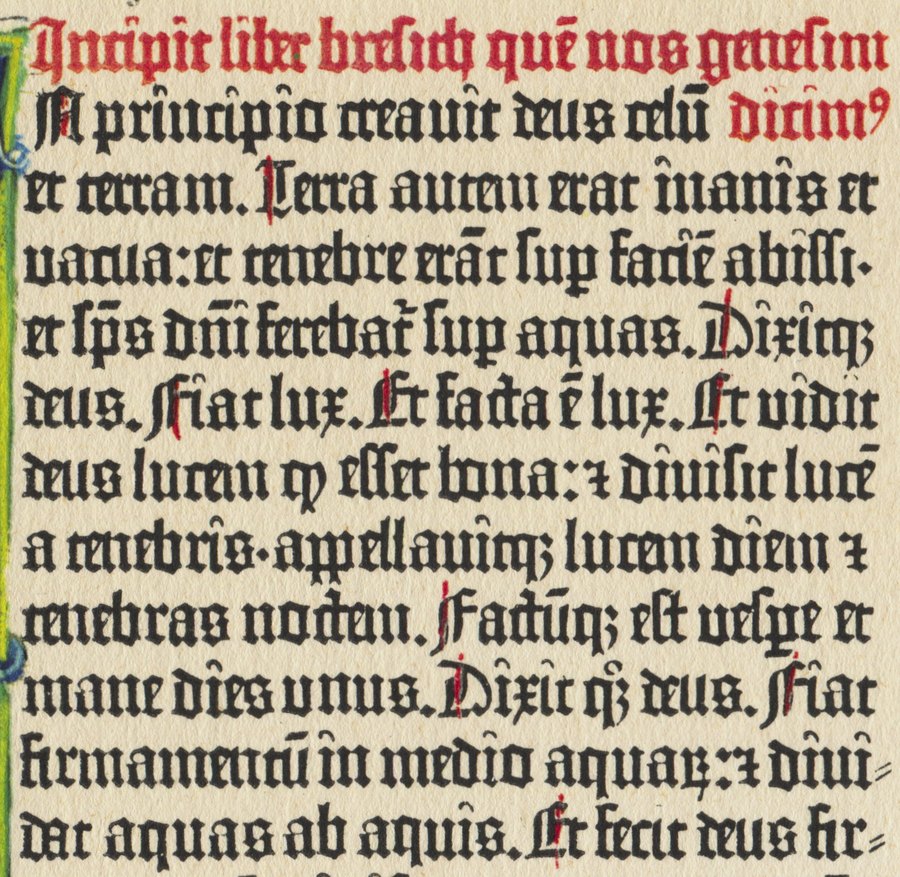 Incipit liber bresith quē nos genesim
A principio creauit deus celū dicimꝰ
et terram. Terra autem erat inanis et
vacua: et tenebre erāt suꝑ faciē abissi·
et sp̄s dn̄i ferebat᷑ suꝑ aquas. Dixitqꝫ
deus. Fiat lux. Et facta ē lux. Et vidit
deus lucem ꝙ esset bona: ⁊ diuisit lucē
a tenebris· appellauitqꝫ lucem diem ⁊
tenebras noctem. Factūqꝫ est vesꝑe et
mane dies unus. Dixit qꝫ deus. Fiat
firmamentū in medio aquaꝝ: ⁊ diui-
dat aquas ab aquis. Et fecit deus fir-